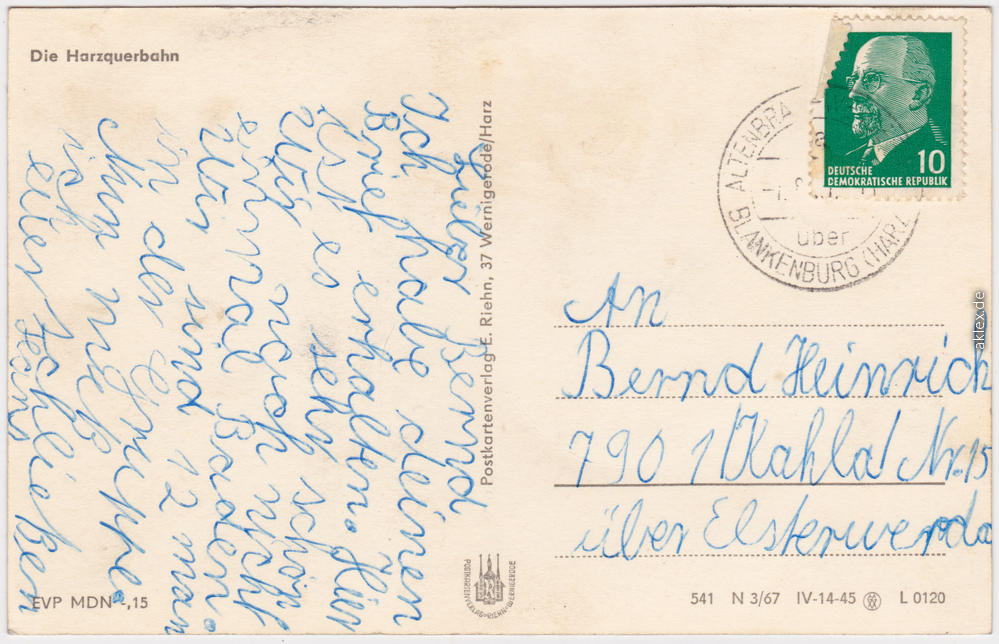 Die Harzquerbahn
Lieber Bernd
Ich habe deinen
Brief erhalten. Hier
ist es sehr schön
Wir noch nicht
einmal Baden.
Wir sind 12 man
in der Gruppe.
Nun muß
ich schließen
euer
Postkartenverlag E. Riehn, 37 Wernigerode/Harz
EVP MDN -,15
POSTKARTENVERLAG-RIEHN-WERNIGERODE
R
DEUTSCHE
DEMOKRATISCHE REPUBLIK
10
ALTENBRA
über
BLANKENBURG (HARZ
An
Bernd Heinrich
7901 Kahla Nr. 15
über Elsterwerda
541 N 3/67 IV-14-45 L 0120
aklex.de